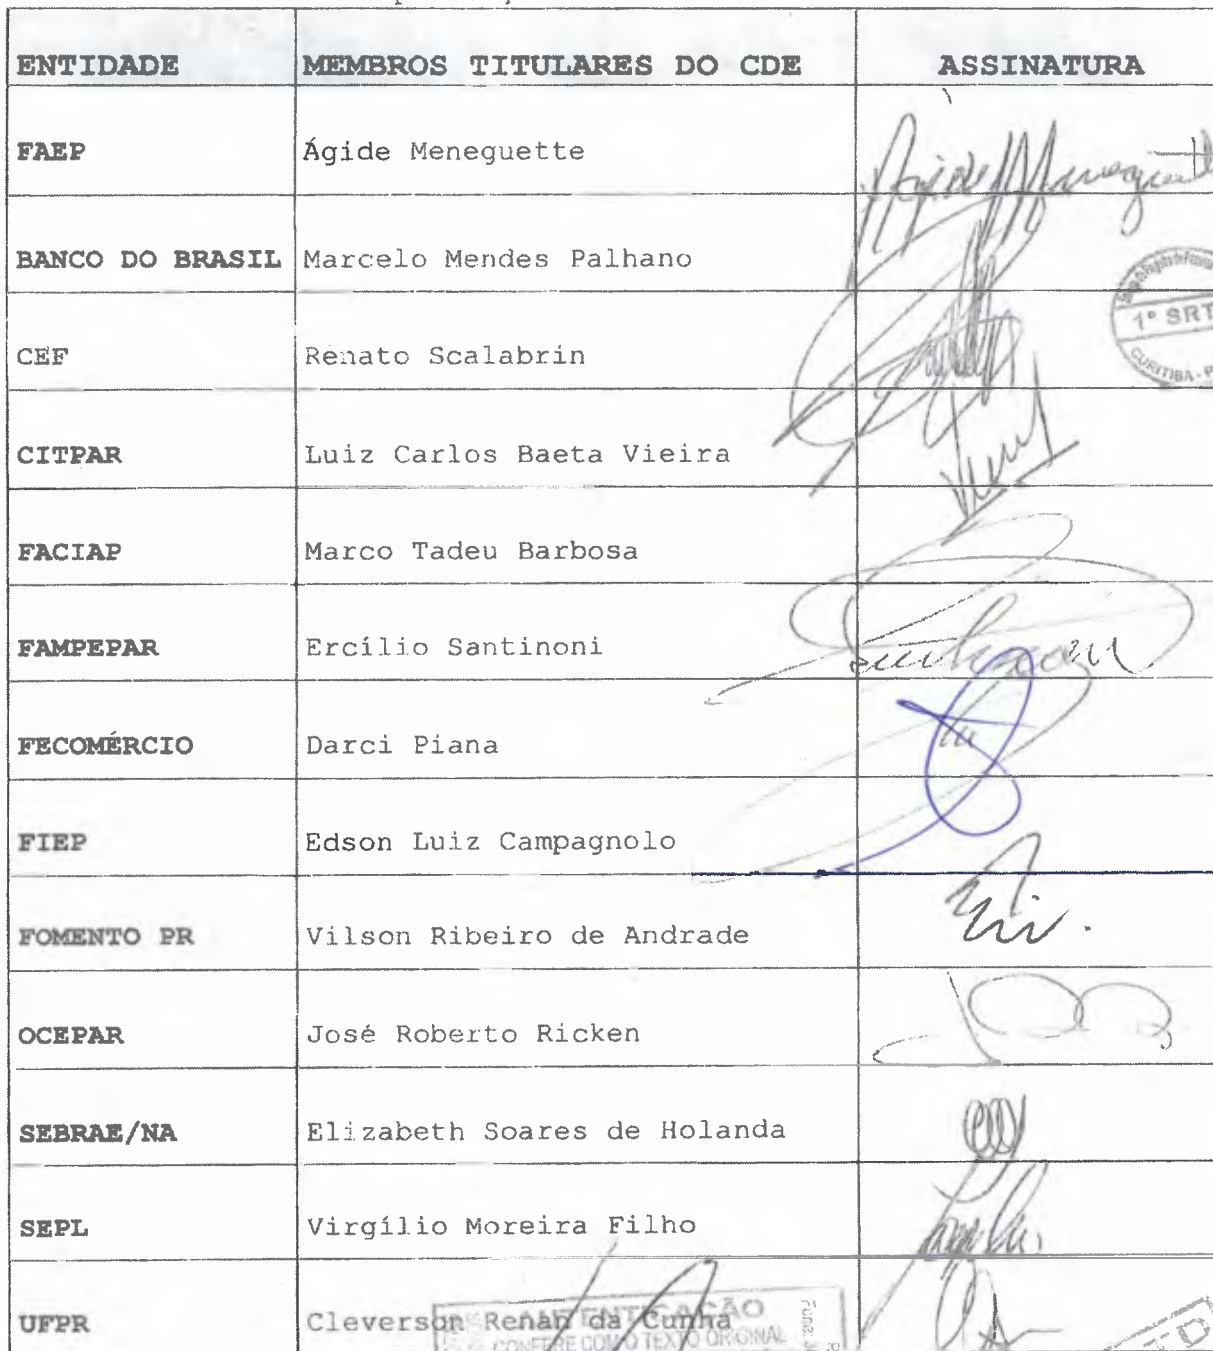 ENTIDADE MEMBROS TITULARES DO CDE ASSINATURA
FAEP Ágide Meneguette
BANCO DO BRASIL Marcelo Mendes Palhano
1º SRT
CEF Renato Scalabrin
CURITIBA - P
CITPAR Luiz Carlos Baeta Vieira
FACIAP Marco Tadeu Barbosa
FAMPEPAR Ercílio Santinoni
FECOMÉRCIO Darci Piana
FIEP Edson Luiz Campagnolo
FOMENTO PR Vilson Ribeiro de Andrade
OCEPAR José Roberto Ricken
SEBRAE/NA Elizabeth Soares de Holanda
SEPL Virgílio Moreira Filho
AUTENTICAÇÃO
UFPR Cleverson Renan da Cunha
CONFERE COM O TEXTO ORIGINAL